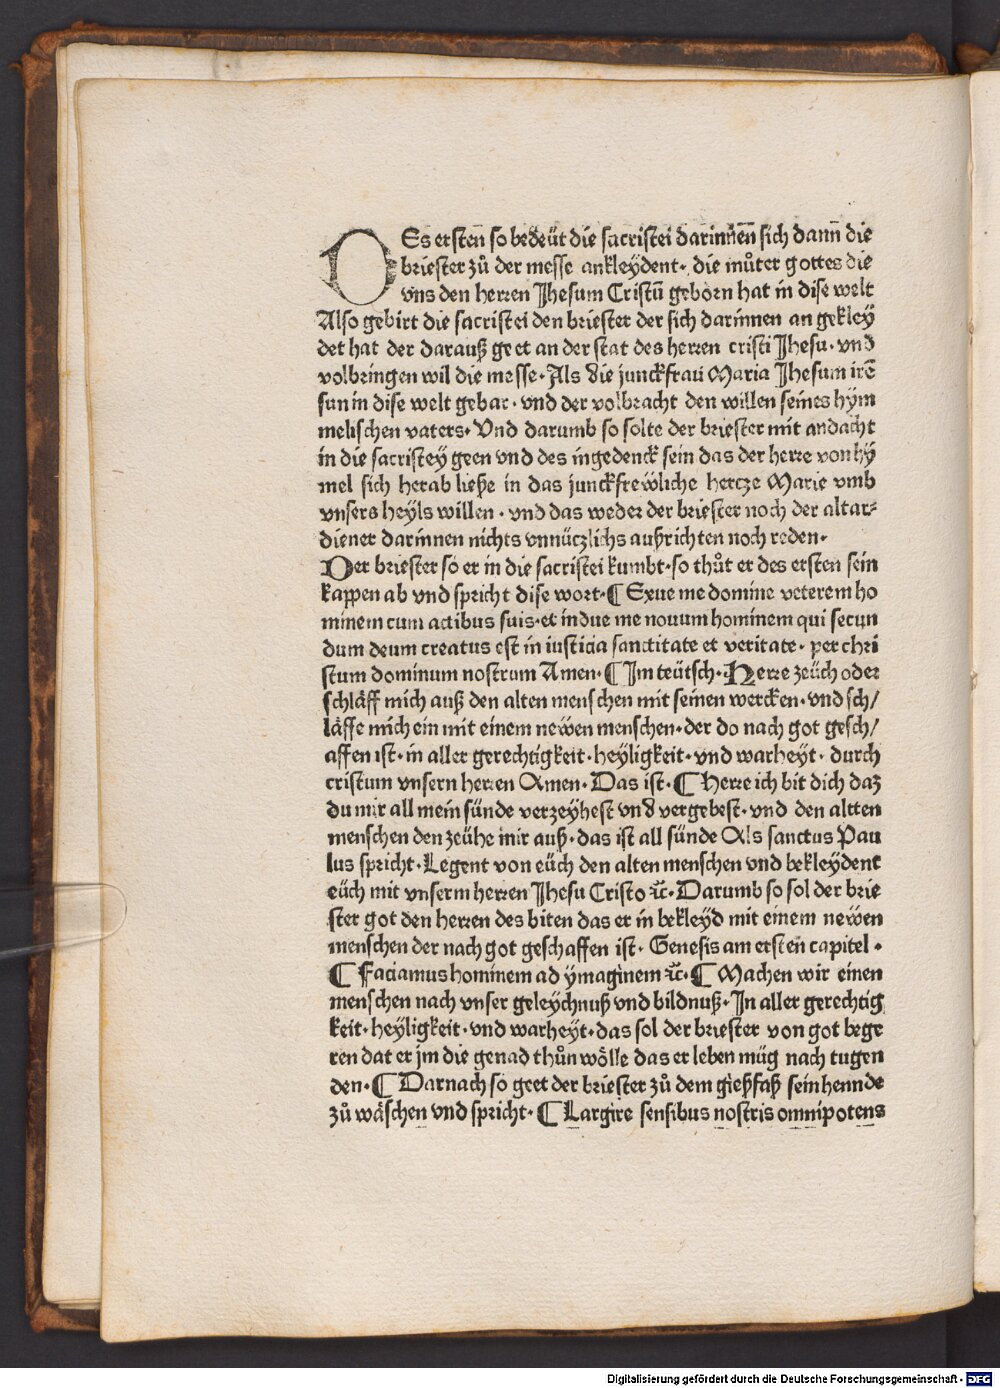 DEs ersten̄ so bedeüt die sacristei darinnen̄ sich dann̄ die
briester zů der messe ankleydent· die můter gottes die
vns den herren Jhesum Cristū geborn hat in dise welt
Also gebirt die sacristei den briester der sich darinnen an gekley
det hat der darauß geet an der stat des herren cristi Jhesu· vnd
volbringen wil die messe· Als die junckfrau Maria Jhesum irē
sun in dise welt gebar· vnd der volbracht den willen seines hym
melischen vaters· Vnd darumb so solte der briester mit andacht
in die sacristey geen vnd des ingedenck sein das der herre von hy
mel sich herab ließe in das junckfrewliche hercze Marie vmb
vnsers heyls willen· vnd das weder der briester noch der altar⸗
diener darinnen nichts vnnüczlichs außrichten noch reden·
Der briester so er in die sacristei kumbt· so thůt er des ersten sein
kappen ab vnd spricht dise wort· ¶ Exue me domine veterem ho
minem cum actibus suis· et indue me nouum hominem qui secun
dum deum creatus est in iusticia sanctitate et veritate· per chri
stum dominum nostrum Amen· ¶ Im teütsch· Herre zeüch oder
schlåff mich auß den alten menschen mit seinen wercken· vnd sch/
låffe mich ein mit einem newen menschen· der do nach got gesch/
affen ist· in aller gerechtigkeit· heyligkeit· vnd warheyt· durch
cristum vnsern herren Amen· Das ist· ¶ Herre ich bit dich daz
du mir all mein sünde verzeyhest vnd vergebest· vnd den altten
menschen den zeühe mir auß· das ist all sünde Als sanctus Pau
lus spricht· Legent von eüch den alten menschen vnd bekleydent
eüch mit vnserm herren Jhesu Cristo ꝛc̄· Darumb so sol der brie
ster got den herren des biten das er in bekleyd mit einem newen
menschen der nach got geschaffen ist· Genesis am ersten capitel·
¶ Faciamus hominem ad ymaginem ꝛc̄· ¶ Machen wir einen
menschen nach vnser geleychnuß vnd bildnuß· In aller gerechtig
keit· heyligkeit· vnd warheyt· das sol der briester von got bege
ren dat er jm die genad thůn wölle das er leben müg nach tugen
den· ¶ Darnach so geet der briester zů dem gießfaß sein hennde
zů wåschen vnd spricht· ¶ Largire sensibus nostris omnipotens
Digitalisierung gefördert durch die Deutsche Forschungsgemeinschaft - DFG